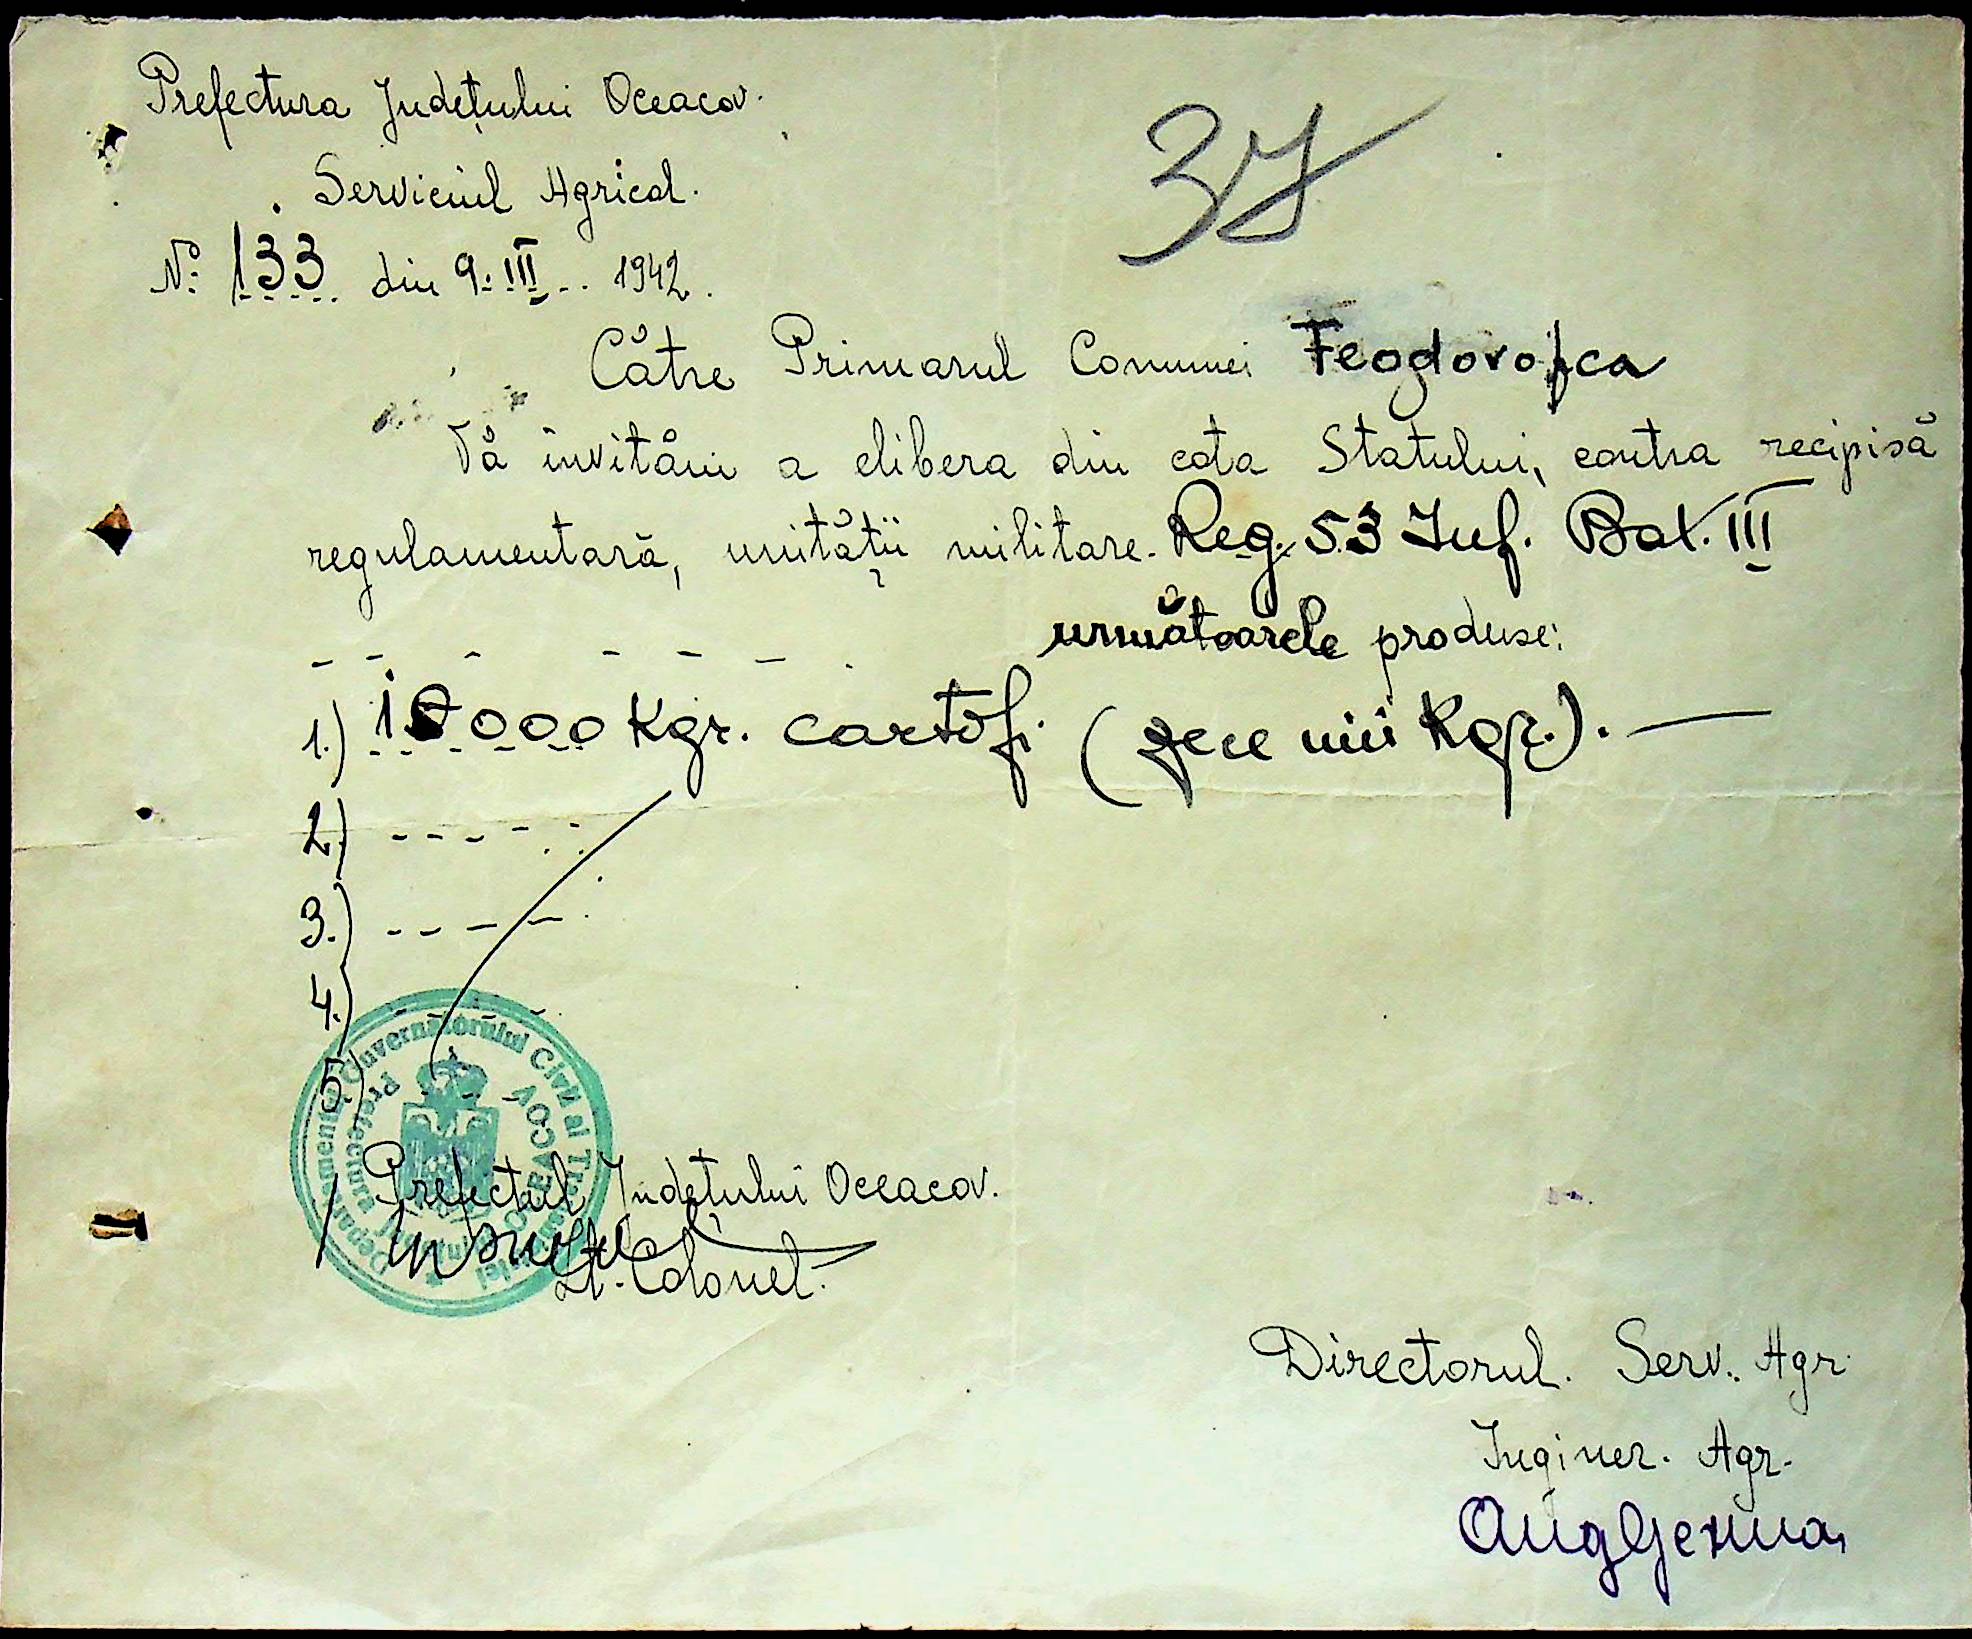 Prefectura Județului Oceacov.
37
Serviciul Agricol.
No: 133 din 9.III.. 1942.
Către Primarul Comunei Feodorofca
Vă invităm a elibera din cota Statului, contra recipisă
regulamentară, unității militare. Reg. 53 Inf. Bat. III
următoarele produse:
1.) 10000 Kgr. cartofi (zece mii Kgr.). —
2.) - - - - -
3.) - - - -
4.)
5)
Guvernătorului Civil al
Prefectura
OCEACOV
Prefectul Județului Oceacov.
Lt. Colonel.
Directorul. Serv. Agr.
Inginer. Agr.